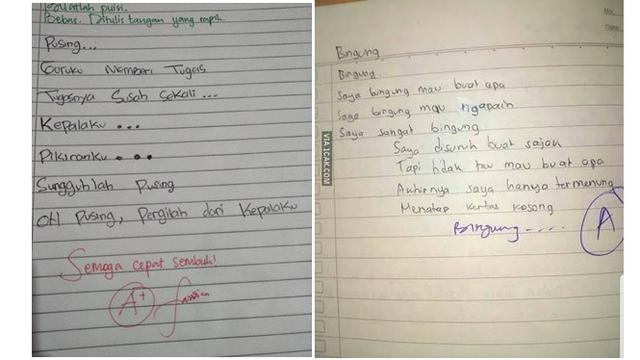 buatlah puisi.
Bebas. Ditulis tangan yang rapi.
Pusing...
Guruku Memberi Tugas
Tugasnya Susah Sekali ...
Kepalaku ...
Pikiranku ...
Sungguhlah Pusing
Oh Pusing, Pergilah dari Kepalaku
Semoga cepat sembuh!
A+
No.
Date:
Bingung
Bingung
Saya bingung mau buat apa
Saya bingung mau ngapain
Saya sangat bingung
Saya disuruh buat sajak
Tapi tidak tau mau buat apa
Akhirnya saya hanya termenung
Menatap kertas kosong
Bingung....
A
VIA 1CAK.COM